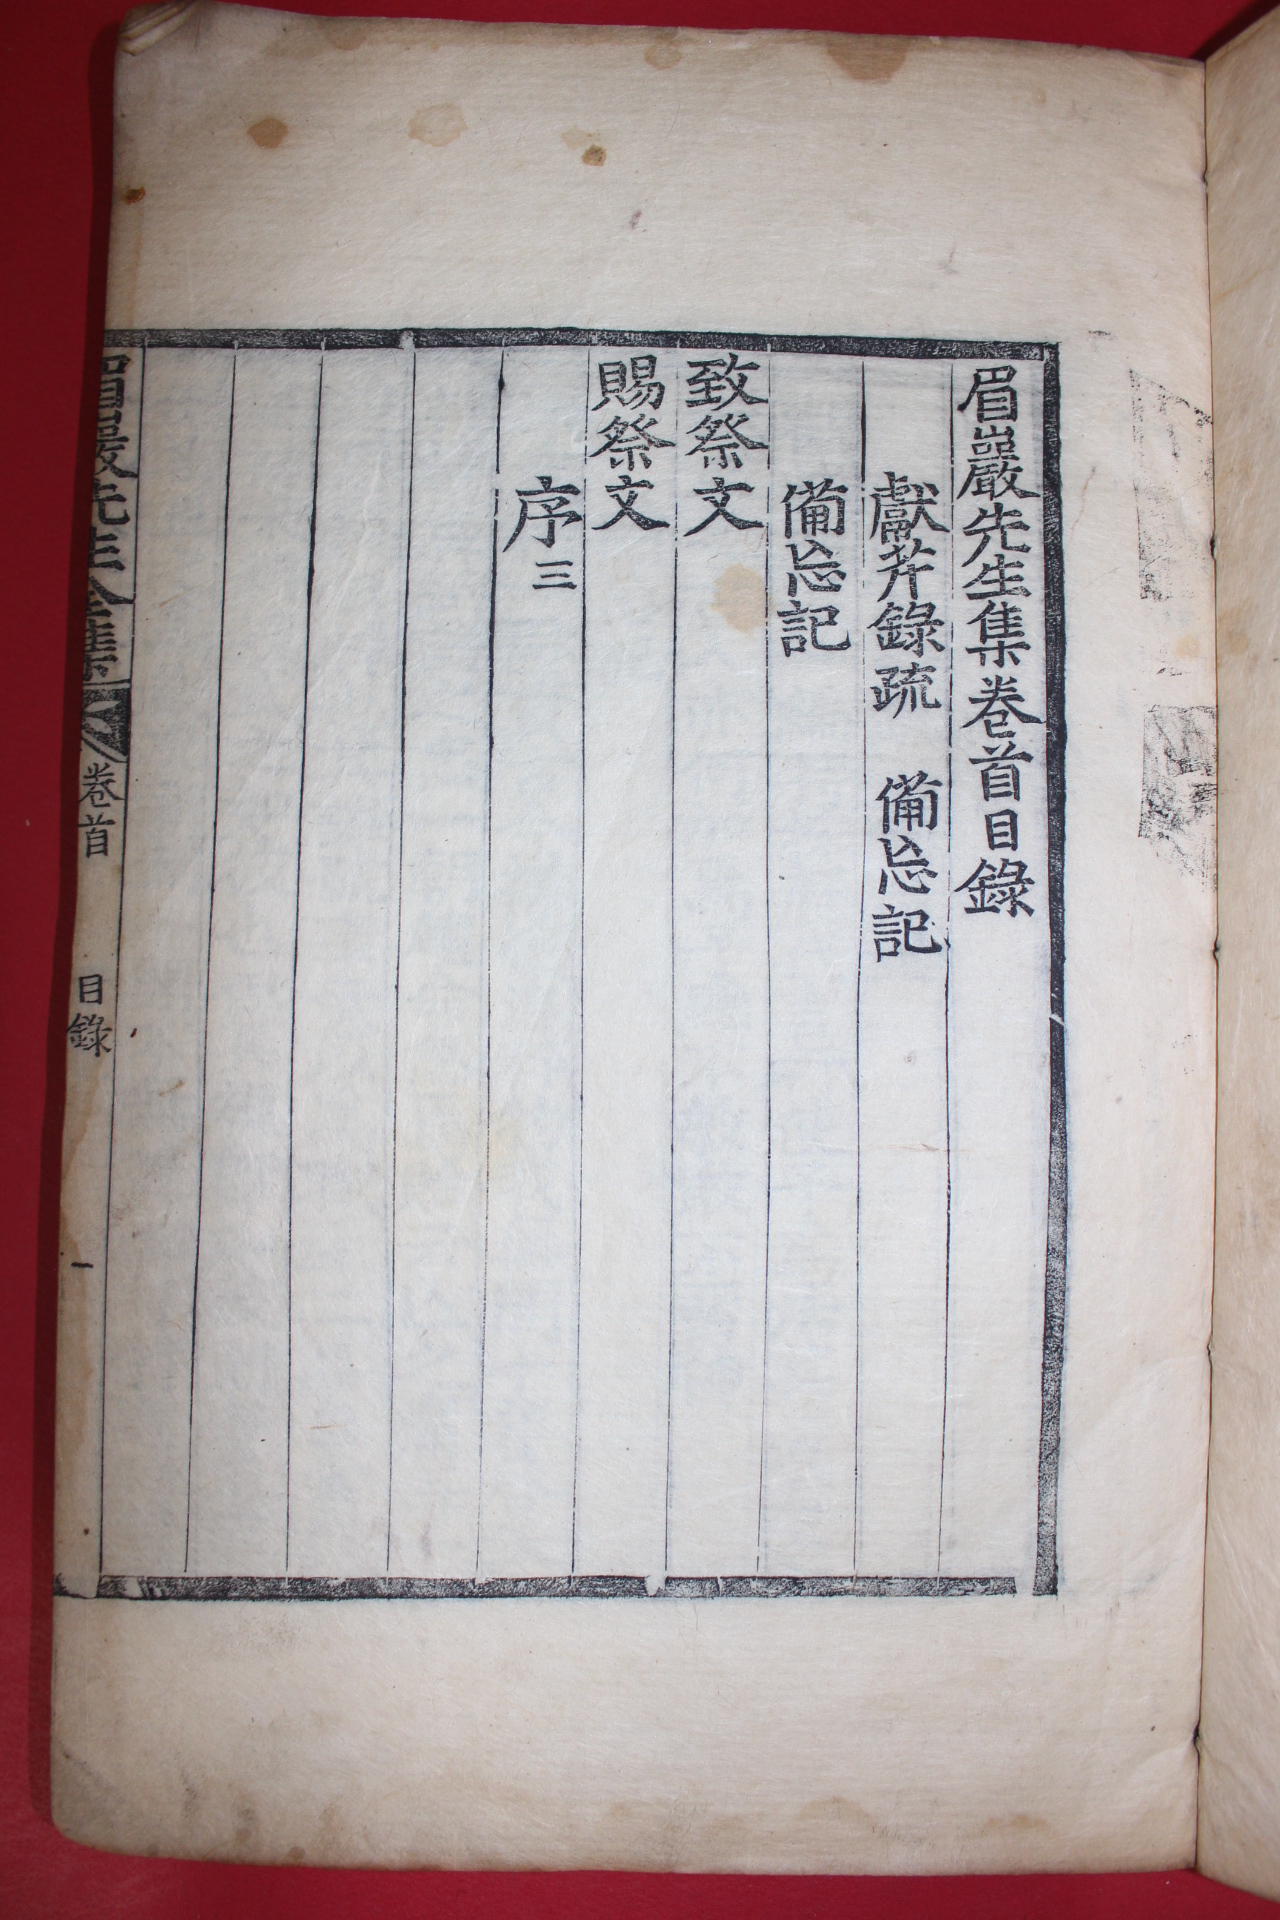 眉巖先生集卷首目錄
獻芹錄疏 備忘記
備忘記
致祭文
賜祭文
序三
眉巖先生全集 卷首 目錄 一